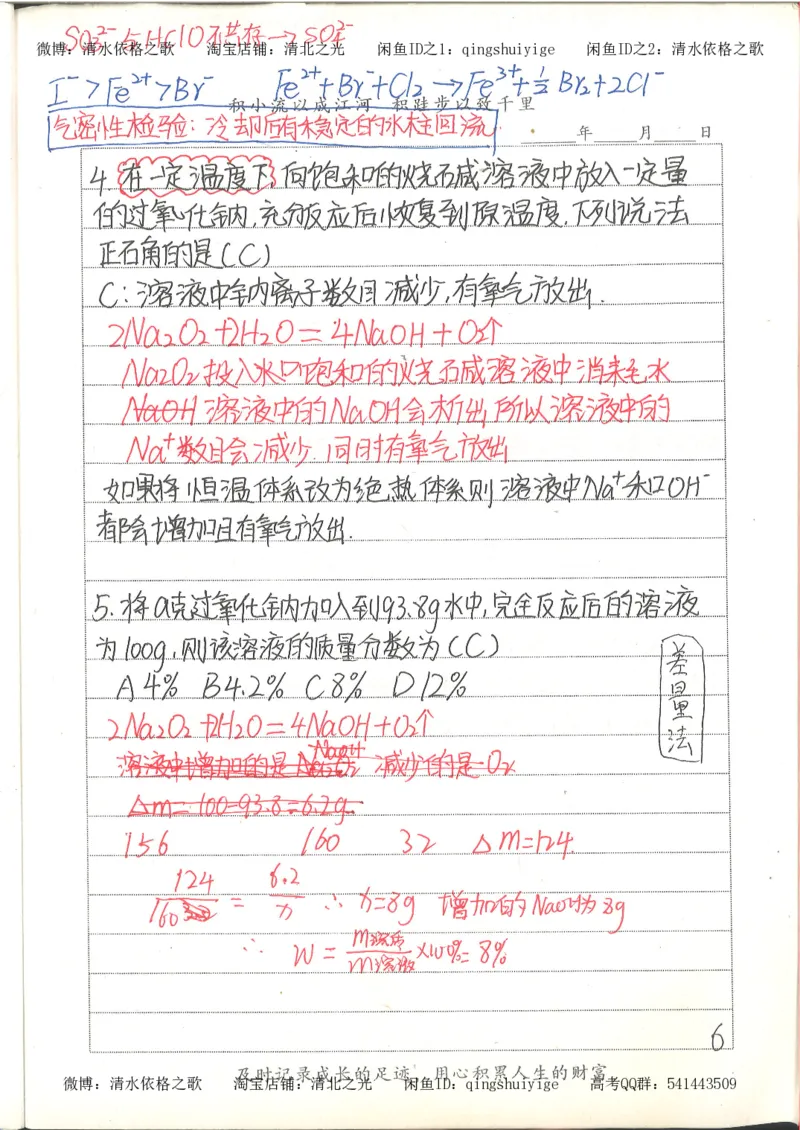 SO₃²⁻与HClO不共存→SO₄²⁻
微博：清水依格之歌 淘宝店铺：清北之光 闲鱼ID之1：qingshuiyige 闲鱼ID之2：清水依格之歌
I⁻>Fe²⁺>Br⁻ Fe²⁺+Br⁻+Cl₂→Fe³⁺+½Br₂+2Cl⁻
积小流以成江河 积跬步以致千里
气密性检验：冷却后有稳定的水柱回流
年 月 日
4.在一定温度下,向饱和的烧石咸溶液中放入一定量
的过氧化钠,充分反应后恢复到原温度.下列说法
正确的是(C)
C:溶液中钠离子数目减少,有氧气放出.
2Na₂O₂+2H₂O=4NaOH+O₂↑
Na₂O₂投入水口饱和的烧石咸溶液中消耗水
NaOH溶液中的NaOH会析出,所以溶液中的
Na⁺数目会减少.同时有氧气放出
如果将恒温体系改为绝热体系则溶液中Na⁺和OH⁻
都会增加且有氧气放出.
5.将a克过氧化钠加入到93.8g水中,完全反应后的溶液
为100g,则该溶液的质量分数为(C)
A 4% B 4.2% C 8% D 12%
差量法
2Na₂O₂+2H₂O=4NaOH+O₂↑
NaOH
溶液中增加的是 减少的是O₂
Δm=100-93.8=6.2g
156 160 32 Δm=124
124/160 = 6.2/x ∴x=8g 增加的NaOH为8g
∴ W=m溶质/m溶液×100%=8%
6
及时记录成长的足迹 用心积累人生的财富
微博：清水依格之歌 淘宝店铺：清北之光 闲鱼ID：qingshuiyige 高考QQ群：541443509